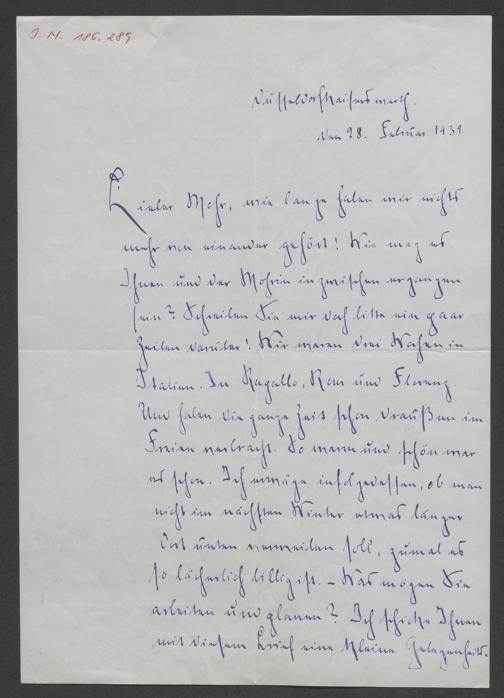 J. N. 186.289
Düsseldorf Kaiserswerth.
den 28. Februar 1939.
Lieber Mohr, wie lange haben wir nichts
mehr von einander gehört! Wie mag es
Ihnen und der Mohrin inzwischen ergangen
sein? Schreiben Sie mir doch bitte ein paar
Zeilen darüber! Wir waren drei Wochen in
Italien. In Rapallo, Rom und Florenz.
Und haben die ganze Zeit schon draußen im
Freien verbracht. So warm und schön war
es schon. Ich erwäge infolgedessen, ob man
nicht im nächsten Winter etwas länger
dort unten verweilen soll, zumal es
so lächerlich billig ist. – Was mögen Sie
arbeiten und planen? Ich schicke Ihnen
mit diesem Brief eine kleine Gelegenheits-